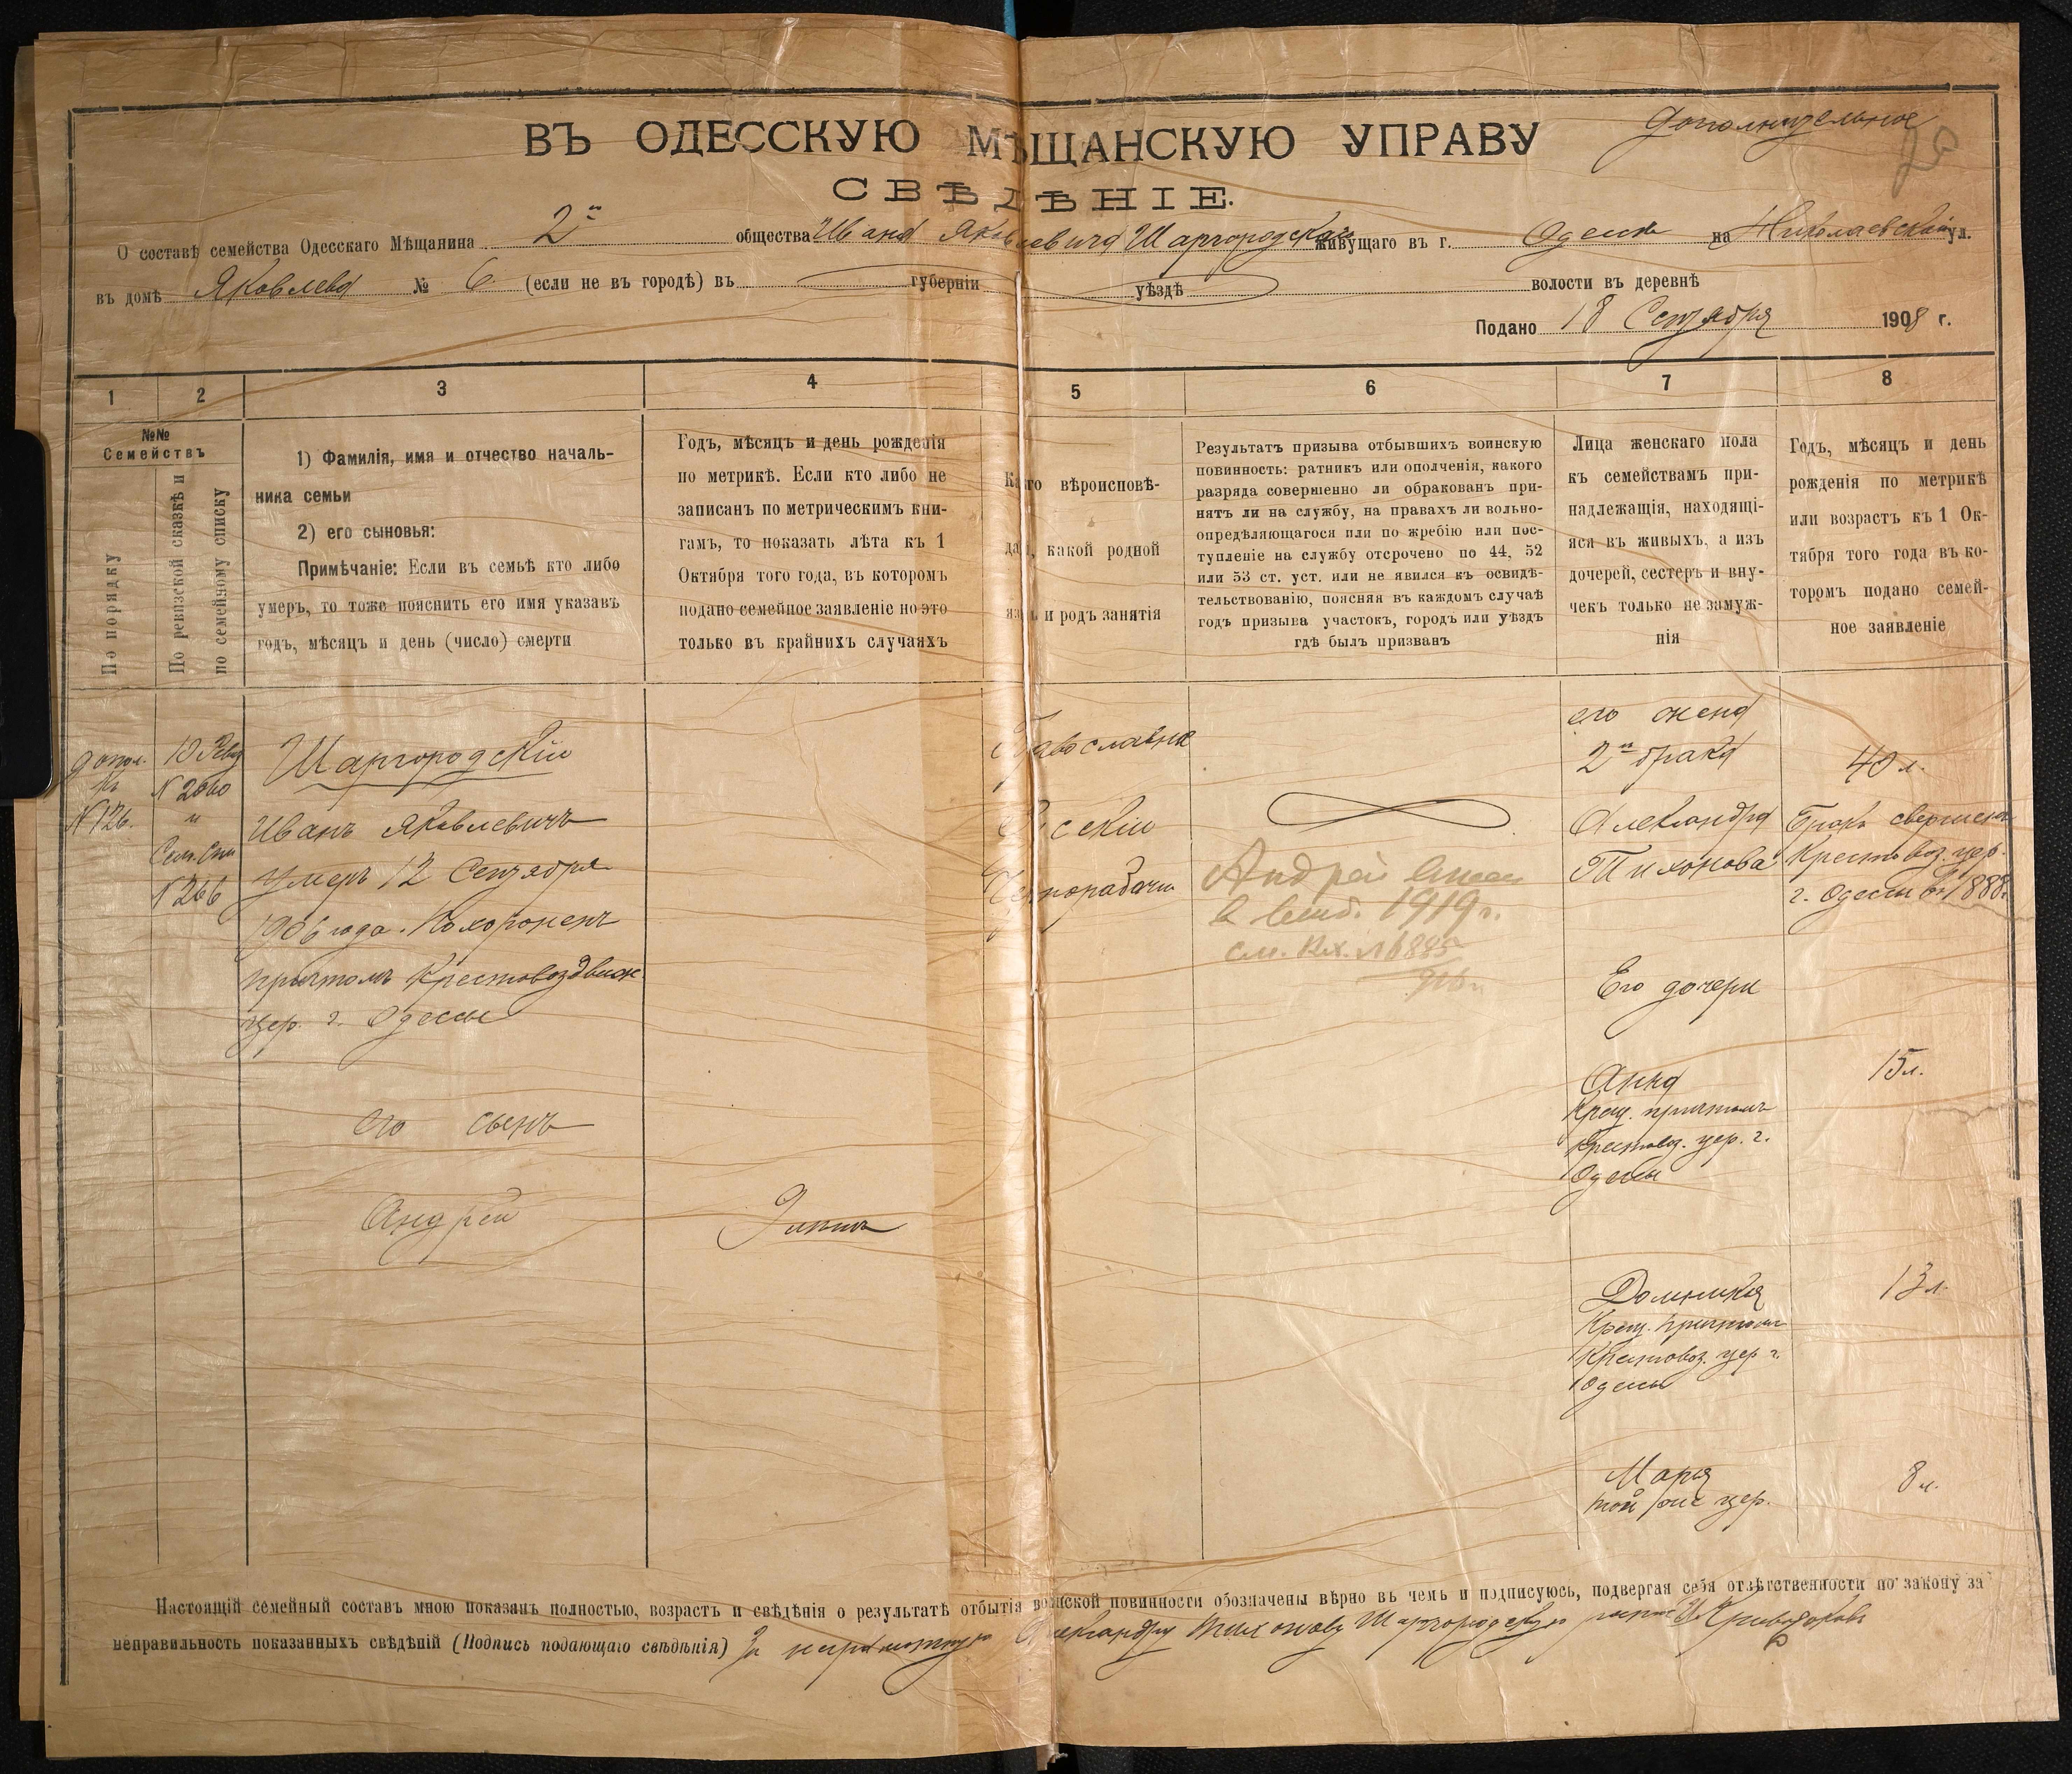 Дополнительное
20
ВЪ ОДЕССКУЮ МѢЩАНСКУЮ УПРАВУ
СВѢДѢНІЕ.
О составѣ семейства Одесскаго Мѣщанина 2й общества Ивана Яковлевича Шаргородскаго живущаго въ г. Одессѣ на Николаевской ул.
въ домѣ Яковлева № 6 (если не въ городѣ) въ губерніи уѣздѣ волости въ деревнѣ
Подано 18 Сентября 1908 г.
1 2 3 4 5 6 7 8
№№
Семействъ
По порядку
По ревизской сказкѣ и
по семейному списку
1) Фамилія, имя и отчество началь-
ника семьи
2) его сыновья:
Примѣчаніе: Если въ семьѣ кто либо
умеръ, то тоже пояснить его имя указавъ
годъ, мѣсяцъ и день (число) смерти
Годъ, мѣсяцъ и день рожденія
по метрикѣ. Если кто либо не
записанъ по метрическимъ кни-
гамъ, то показать лѣта къ 1
Октября того года, въ которомъ
подано семейное заявленіе но это
только въ крайнихъ случаяхъ
Какого вѣроисповѣ-
данія, какой родной
языкъ и родъ занятія
Результатъ призыва отбывшихъ воинскую
повинность: ратникъ или ополченія, какого
разряда совершенно ли обракованъ при-
нятъ ли на службу, на правахъ ли вольно-
опредѣляющагося или по жребію или пос-
тупленіе на службу отсрочено по 44, 52
или 53 ст. уст. или не явился къ освидѣ-
тельствованію, поясняя въ каждомъ случаѣ
годъ призыва участокъ, городъ или уѣздъ
гдѣ былъ призванъ
Лица женскаго пола
къ семействамъ при-
надлежащія, находящі-
яся въ живыхъ, а изъ
дочерей, сестеръ и вну-
чекъ только не замуж-
нія
Годъ, мѣсяцъ и день
рожденія по метрикѣ
или возрастъ къ 1 Ок-
тября того года въ ко-
торомъ подано семей-
ное заявленіе
допол.
къ
N 126.
10 Рев
N 2060
"
Сем. Сп
N 266
Шаргородскій
Иванъ Яковлевичъ
Умеръ 12 Сентября
1906 года. Похороненъ
причтомъ Крестовоздвиж.
цер. г. Одессы
его сынъ
Андрей
9 лѣтъ
Православна
Русскій
Чернорабочій
Андрей
в 1919 г.
см. Вх. N 6885
его жена
2го брака
Александра
Тихонова
40 л.
Бракъ свершенъ
Крестовоз. цер.
г. Одессы въ 1888 г.
Его дочери
Анна
Крещ. причтомъ
Крестовоз. цер. г.
Одессы
15 л.
Домникія
Крещ. причтомъ
Крестовоз. цер г.
Одессы
13 л.
Марія
той же цер.
8 л.
Настоящій семейный составъ мною показанъ полностью, возрастъ и свѣдѣнія о результатѣ отбытія воинской повинности обозначены вѣрно въ чемъ и подписуюсь, подвергая себя отвѣтственности по закону за
неправильность показанныхъ свѣдѣній (Подпись подающаго свѣдѣнія) За неграмотную Александру Тихонову Шаргородскую